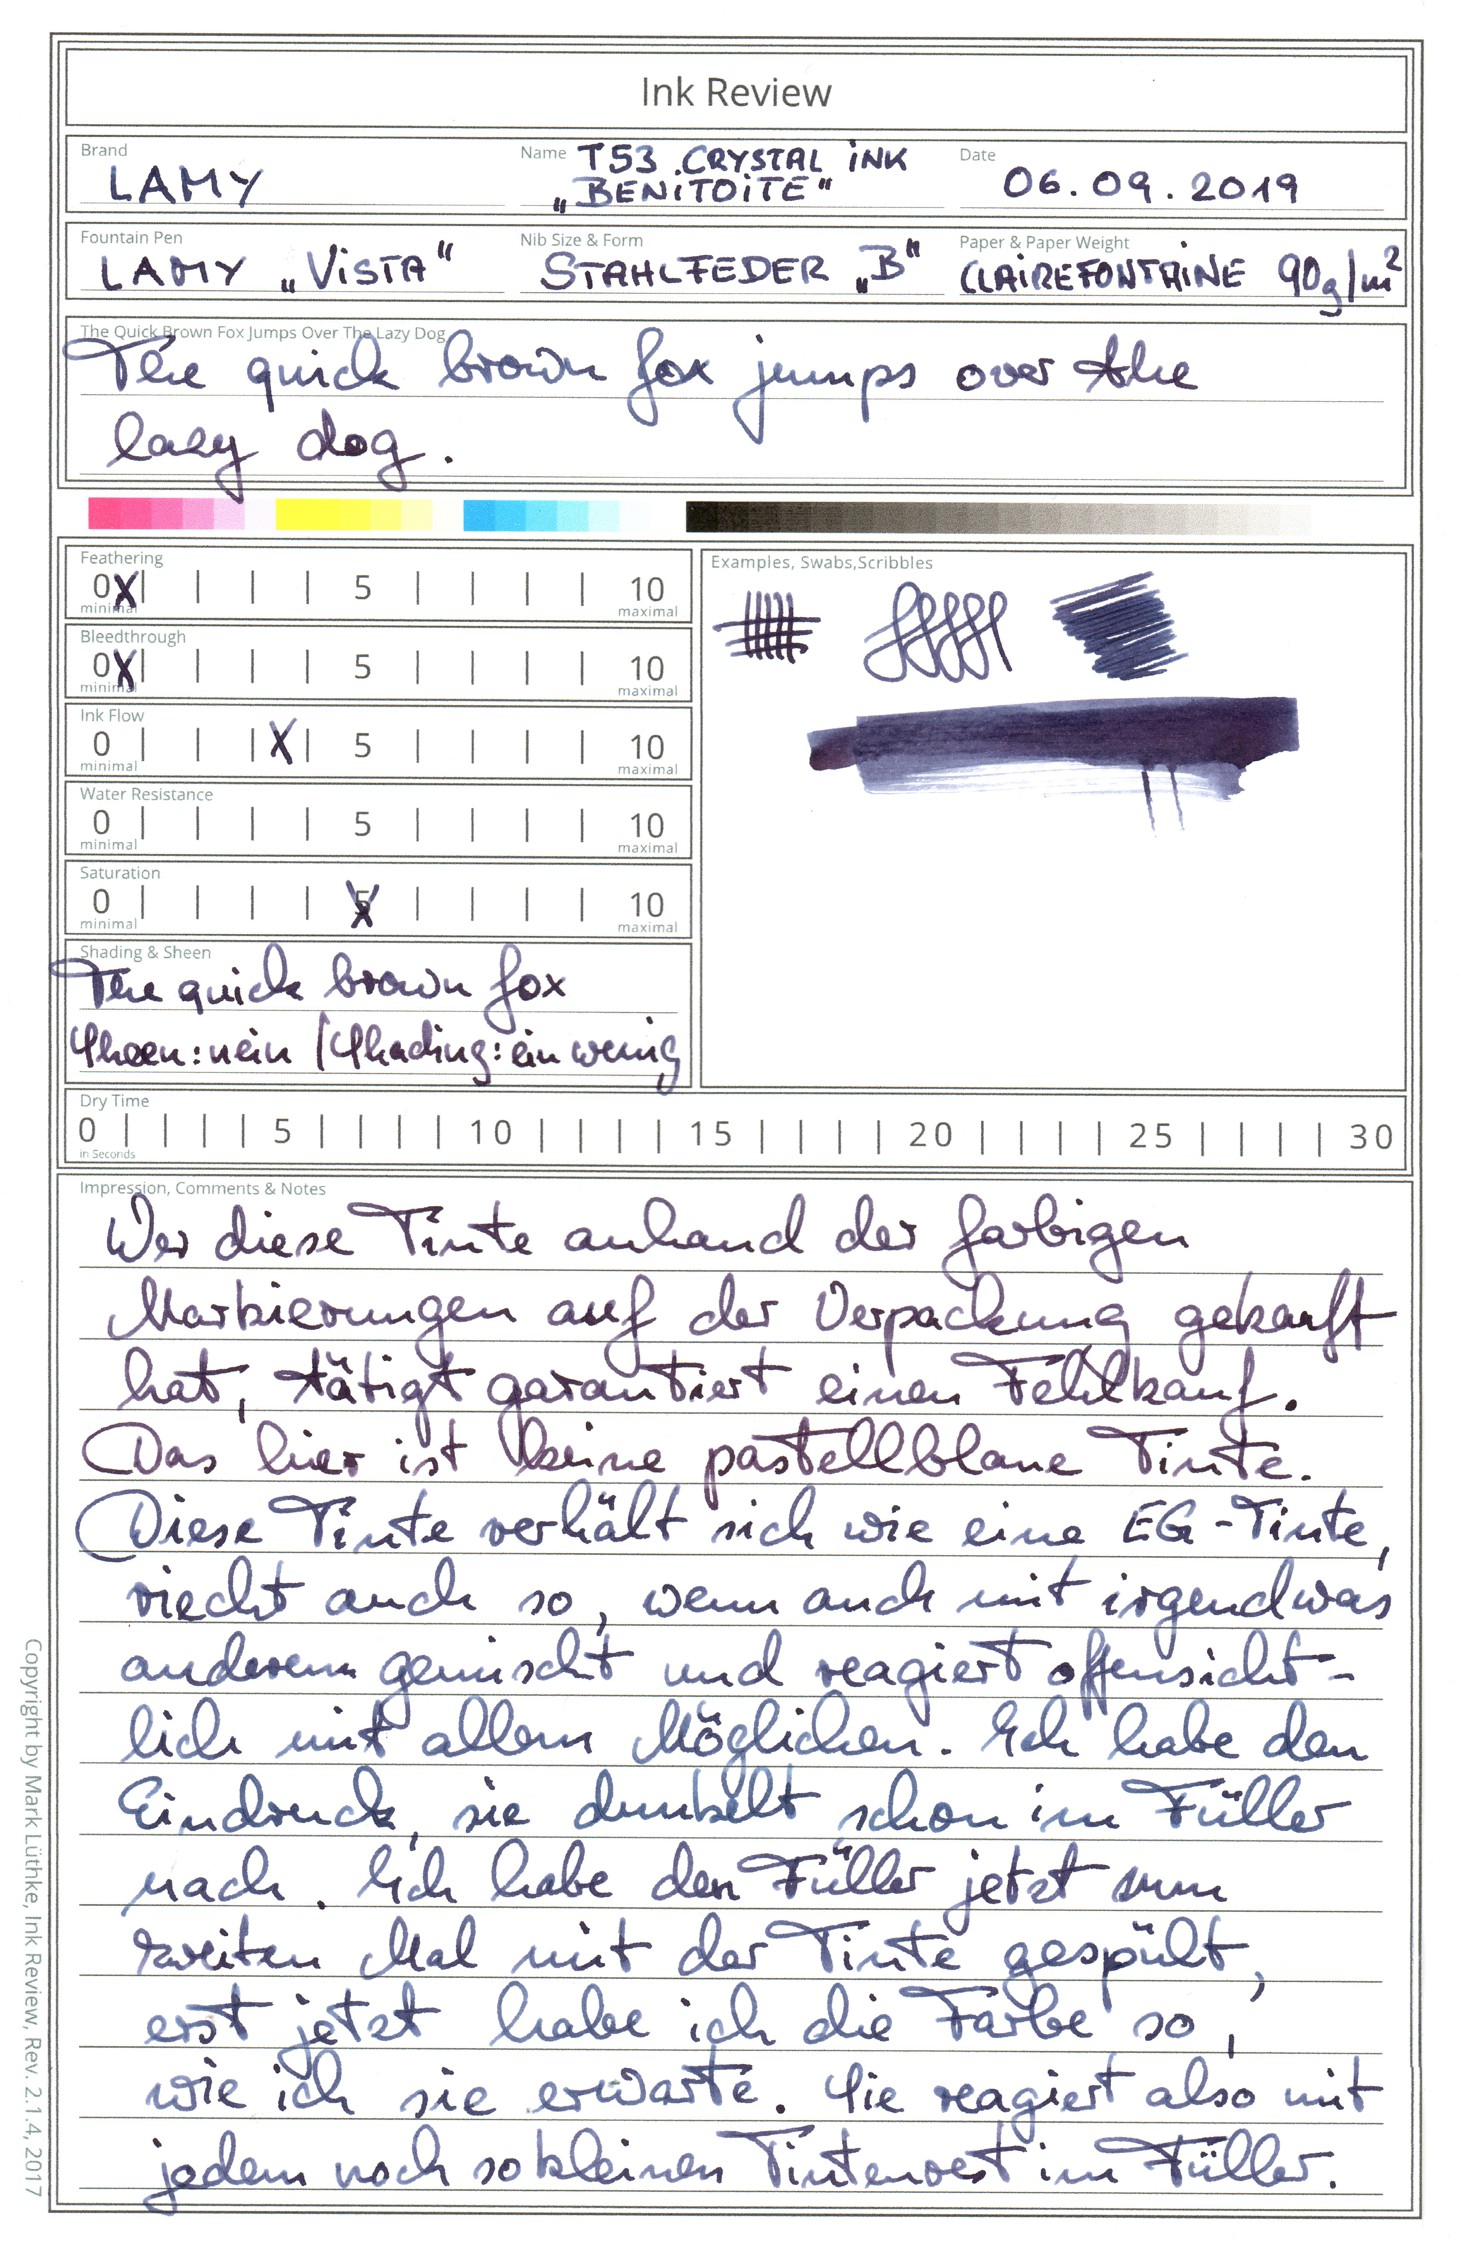 Ink Review
Brand
LAMY
Name
T53 CRYSTAL INK
„BENITOITE"
Date
06.09.2019
Fountain Pen
LAMY „VISTA"
Nib Size & Form
STAHLFEDER „B"
Paper & Paper Weight
CLAIREFONTAINE 90g/m²
The Quick Brown Fox Jumps Over The Lazy Dog
The quick brown fox jumps over the
lazy dog.
Feathering
0 X 5 10
minimal maximal
Bleedthrough
0 X 5 10
minimal maximal
Ink Flow
0 X 5 10
minimal maximal
Water Resistance
0 5 10
minimal maximal
Saturation
0 5 X 10
minimal maximal
Shading & Sheen
The quick brown fox
Sheen: nein / Shading: ein wenig
Examples, Swabs,Scribbles
Dry Time
0 5 10 15 20 25 30
in Seconds
Impression, Comments & Notes
Wer diese Tinte anhand der farbigen
Markierungen auf der Verpackung gekauft
hat, tätigt garantiert einen Fehlkauf.
Das hier ist keine pastellblaue Tinte.
Diese Tinte verhält sich wie eine EG-Tinte,
riecht auch so, wenn auch mit irgendwas
anderem gemischt und reagiert offensicht-
lich mit allem Möglichen. Ich habe den
Eindruck, sie dunkelt schon im Füller
nach. Ich habe den Füller jetzt zum
zweiten Mal mit der Tinte gespült,
erst jetzt habe ich die Farbe so,
wie ich sie erwarte. Sie reagiert also mit
jedem noch so kleinen Tintenrest im Füller.
Copyright by Mark Lüthke, Ink Review, Rev. 2.1.4, 2017